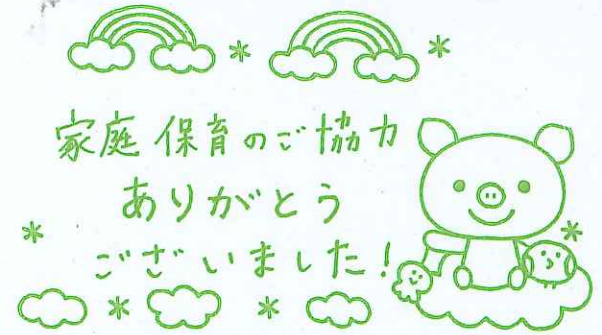 家庭保育のご協力
ありがとう
ございました!